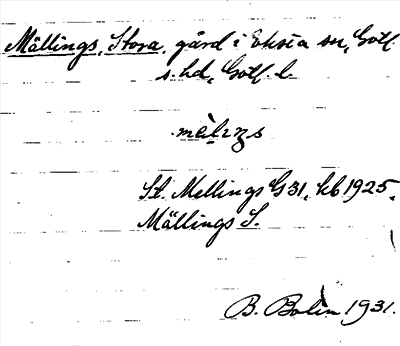 Mällings, Stora, gård i Eksta sn, Gotl.
s. hd, Gotl. l.
St. Mellings G31, kb 1925.
Mällings S.
B. Bolin 1931.